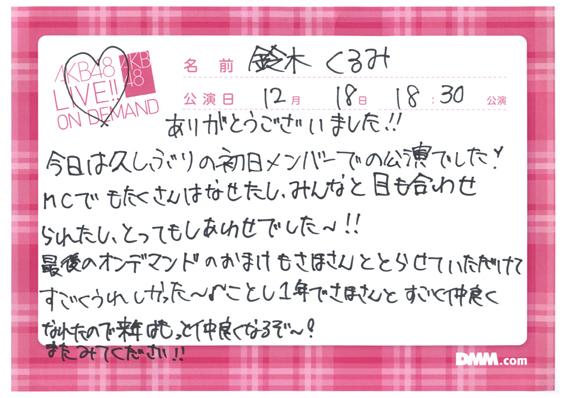 AKB48
LIVE!!
ON DEMAND
AKB
48
名前 鈴木 くるみ
公演日 12月 18日 18:30 公演
ありがとうございました!!
今日は久しぶりの初日メンバーでの公演でした!
MCでもたくさんはなせたし、みんなと目も合わせ
られたし、とってもしあわせでした〜!!
最後のオンデマンドのおまけもさほさんととらせていただけて
すごくうれしかった〜♪ことし1年でさほさんとすごく仲良く
なれたので来年はもっと仲良くなるぞ〜!
またみてください!!
DMM.com